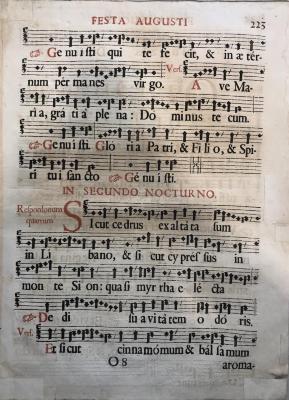 FESTA AUGUSTI 223
Ge nu i sti qui te fe cit, & in æ tér-
num pér ma nes vir go. Vers. A ve Ma-
ri a, gra ti a ple na: Do mi nus te cum.
Ge nu i sti. Gló ri a Pa tri, & Fi li o, & Spi-
ri tu i san cto Ge nú i sti.
IN SECUNDO NOCTURNO.
Responsorium
quartum Sicut ce drus ex al tá ta sum
in Li bano, & si cut cy prés sus in
mon te Si on: qua si myr rha e lé cta
De di su a vi tá tem o dó ris.
Vers. Et si cut cin na mó mum & bál sa mum
O 8 aroma-